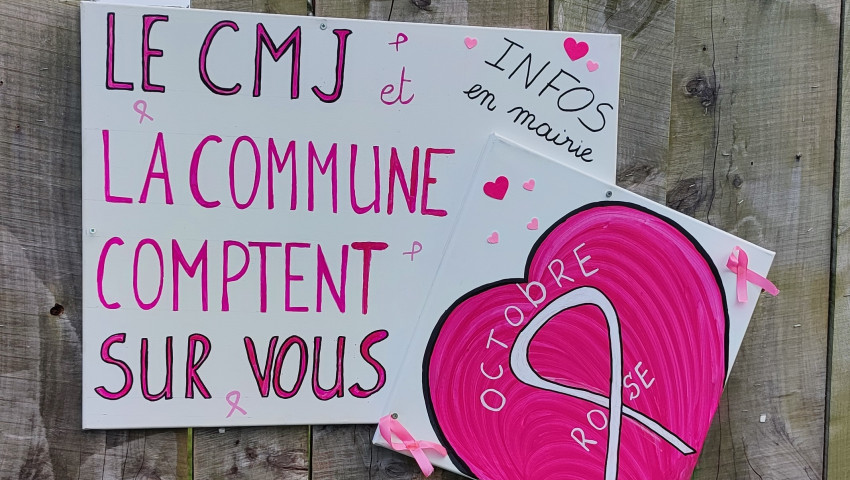 LE CMJ et
LA COMMUNE
COMPTENT
SUR VOUS
INFOS
en mairie
OCTObRE
ROSE